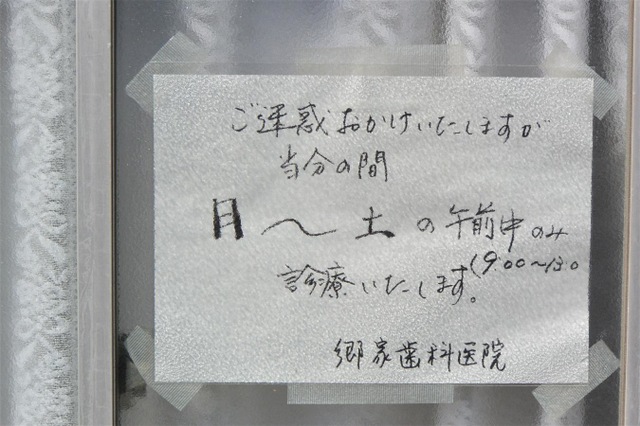 ご迷惑おかけいたしますが
当分の間
月〜土の午前中のみ
診療いたします。(9:00〜13:0
郷家歯科医院